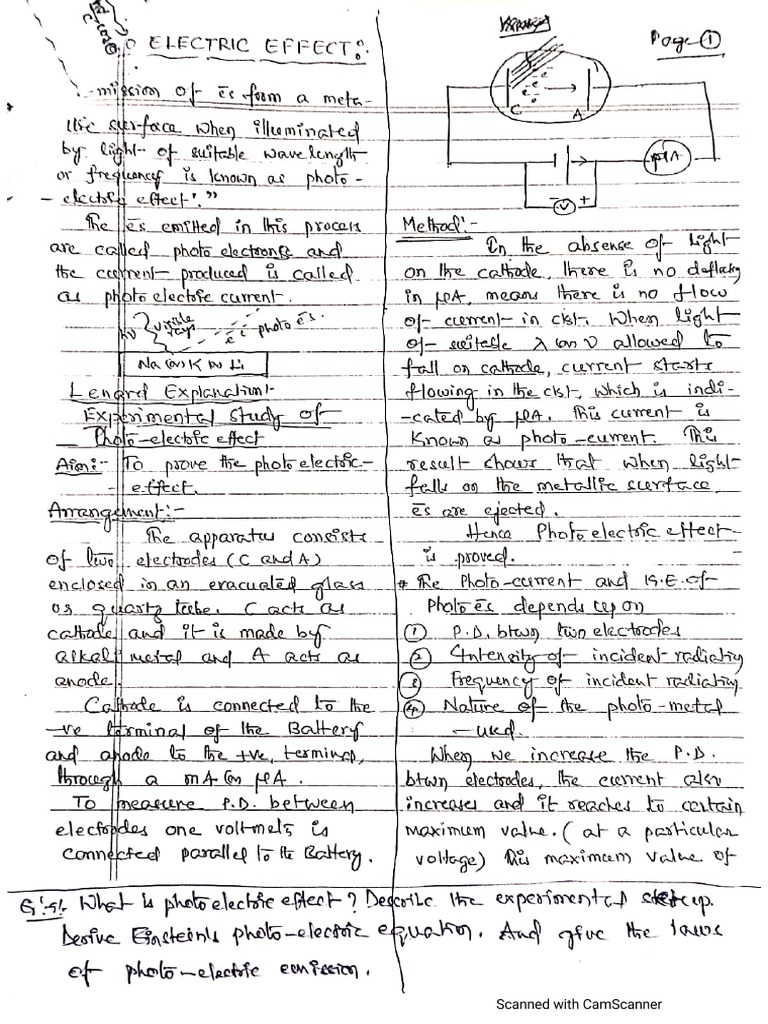 O ELECTRIC EFFECT:
-mission of ēs from a meta-
llic surface when illuminated
by light of suitable wavelength
or frequency is known as photo-
-electric effect."
The ēs emitted in this process
are called photo electrons and
the current produced is called
as photo electric current.
hν visible rays ēs photo ēs.
Na (or) K (or) Li
Lenard Explanation:-
Experimental Study of
Photo-electric effect
Aim:- To prove the photo electric-
- effect.
Arrangement:-
The apparatus consists
of two electrodes (C and A)
enclosed in an evacuated glass
or quartz tube. C acts as
cathode and it is made by
alkali metal and A acts as
anode.
Cathode is connected to the
-ve terminal of the Battery
and anode to the +ve, terminal,
through a mA (or) μA.
To measure P.D. between
electrodes one voltmets is
connected parallel to the Battery.
Page-①
C e e e A
μA
- V +
Method:-
In the absence of light
on the cathode, there is no deflectiy
in μA, means there is no flow
of current in ckt. When light
of suitable λ (or) ν allowed to
fall on cathode, current starts
flowing in the ckt, which is indi-
-cated by μA. This current is
known as photo-current. This
result shows that when light
falls on the metallic surface,
ēs are ejected.
Hence Photo electric effect
is proved.
* The Photo-current and K.E. of
Photo ēs depends upon
① P.D. btwn two electrodes
② Intensity of incident radiatiy
③ Frequency of incident radiatiy
④ Nature of the photo-metal
- used.
When we increase the P.D.
btwn electrodes, the current also
increases and it reaches to certain
maximum value. (at a particular
voltage) This maximum value of
What is photo electric effect? Describe the experimental setup.
Derive Einstein's photo-electric equation. And give the laws
of photo-electric emission.
Scanned with CamScanner